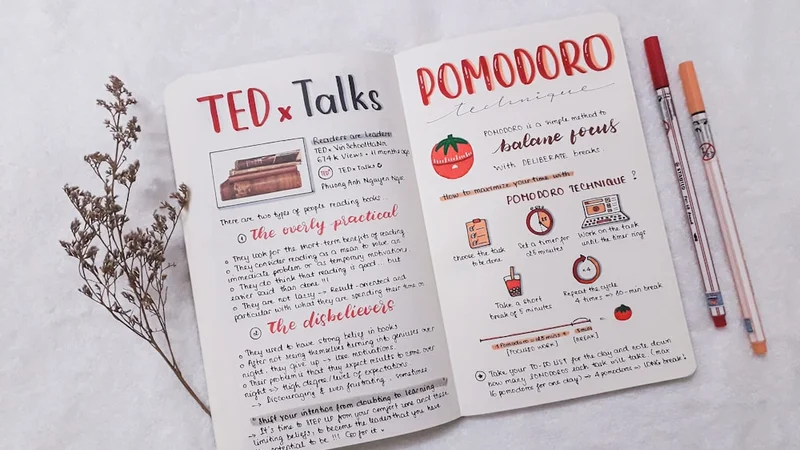 TED x Talks
Readers are leaders
TEDx VinSchoolHaNoi
674k Views • 11 months ago
TEDx Talks
Phuong Anh Nguyen Ngoc
There are two types of people reading books
① The overly practical
o They look for the short-term benefits of reading
o They consider reading as a mean to solve an
immediate problem or as temporary motivations
o They do think that reading is good... but
easier said than done !!!
o They are not lazy -> Result-oriented and
particular with what they are spending their time on
② The disbelievers
o They used to have strong belief in books
o After not seeing themselves turning into geniuses over
night, they give up -> lose motivations
o Their problem is that they expect results to come over
night => High degree/level of expectations
-> Discouraging & even frustrating sometimes
"Shift your intention from doubting to learning"
-> It's time to STEP UP from your comfort zone and those
limiting beliefs, to become the leader that you have
potential to be !!! Go for it
POMODORO
technique
POMODORO is a simple method to
balane focus
with DELIBERATE breaks
How to maximize your time with
POMODORO TECHNIQUE ?
Choose the task
to be done
Set a timer for
25 minutes
Work on the task
until the timer rings
x4
Take a short
break of 5 minutes
Repeat the cycle
4 times => 30-min break
1 Pomodoro = 25 mins + 5 min
(FOCUSED WORK) (BREAK)
Take your TO-DO LIST for the day and note down
how many POMODOROS each task will take (max
16 pomodoros for one day) => 4 pomodoros => LONG break!